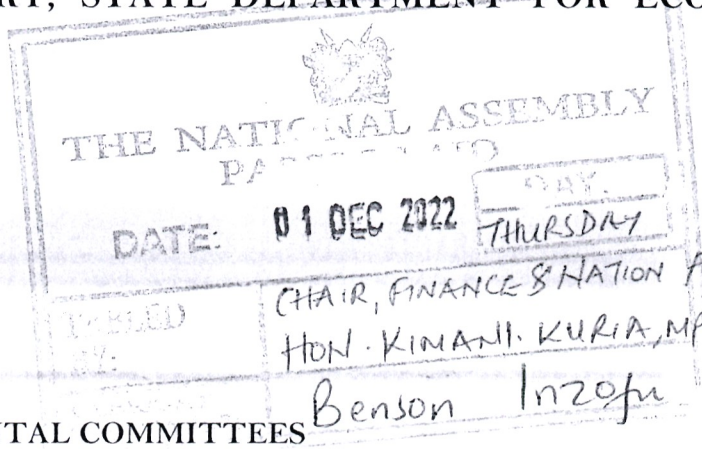 RT, STATE DEPARTMENT FOR ECO
THE NATIONAL ASSEMBLY
DATE: 01 DEC 2022
DAY.
THURSDAY
TABLED
BY:
CHAIR, FINANCE & NATION
HON. KIMANI. KURIA, MP
Benson Inzofu
NTAL COMMITTEES